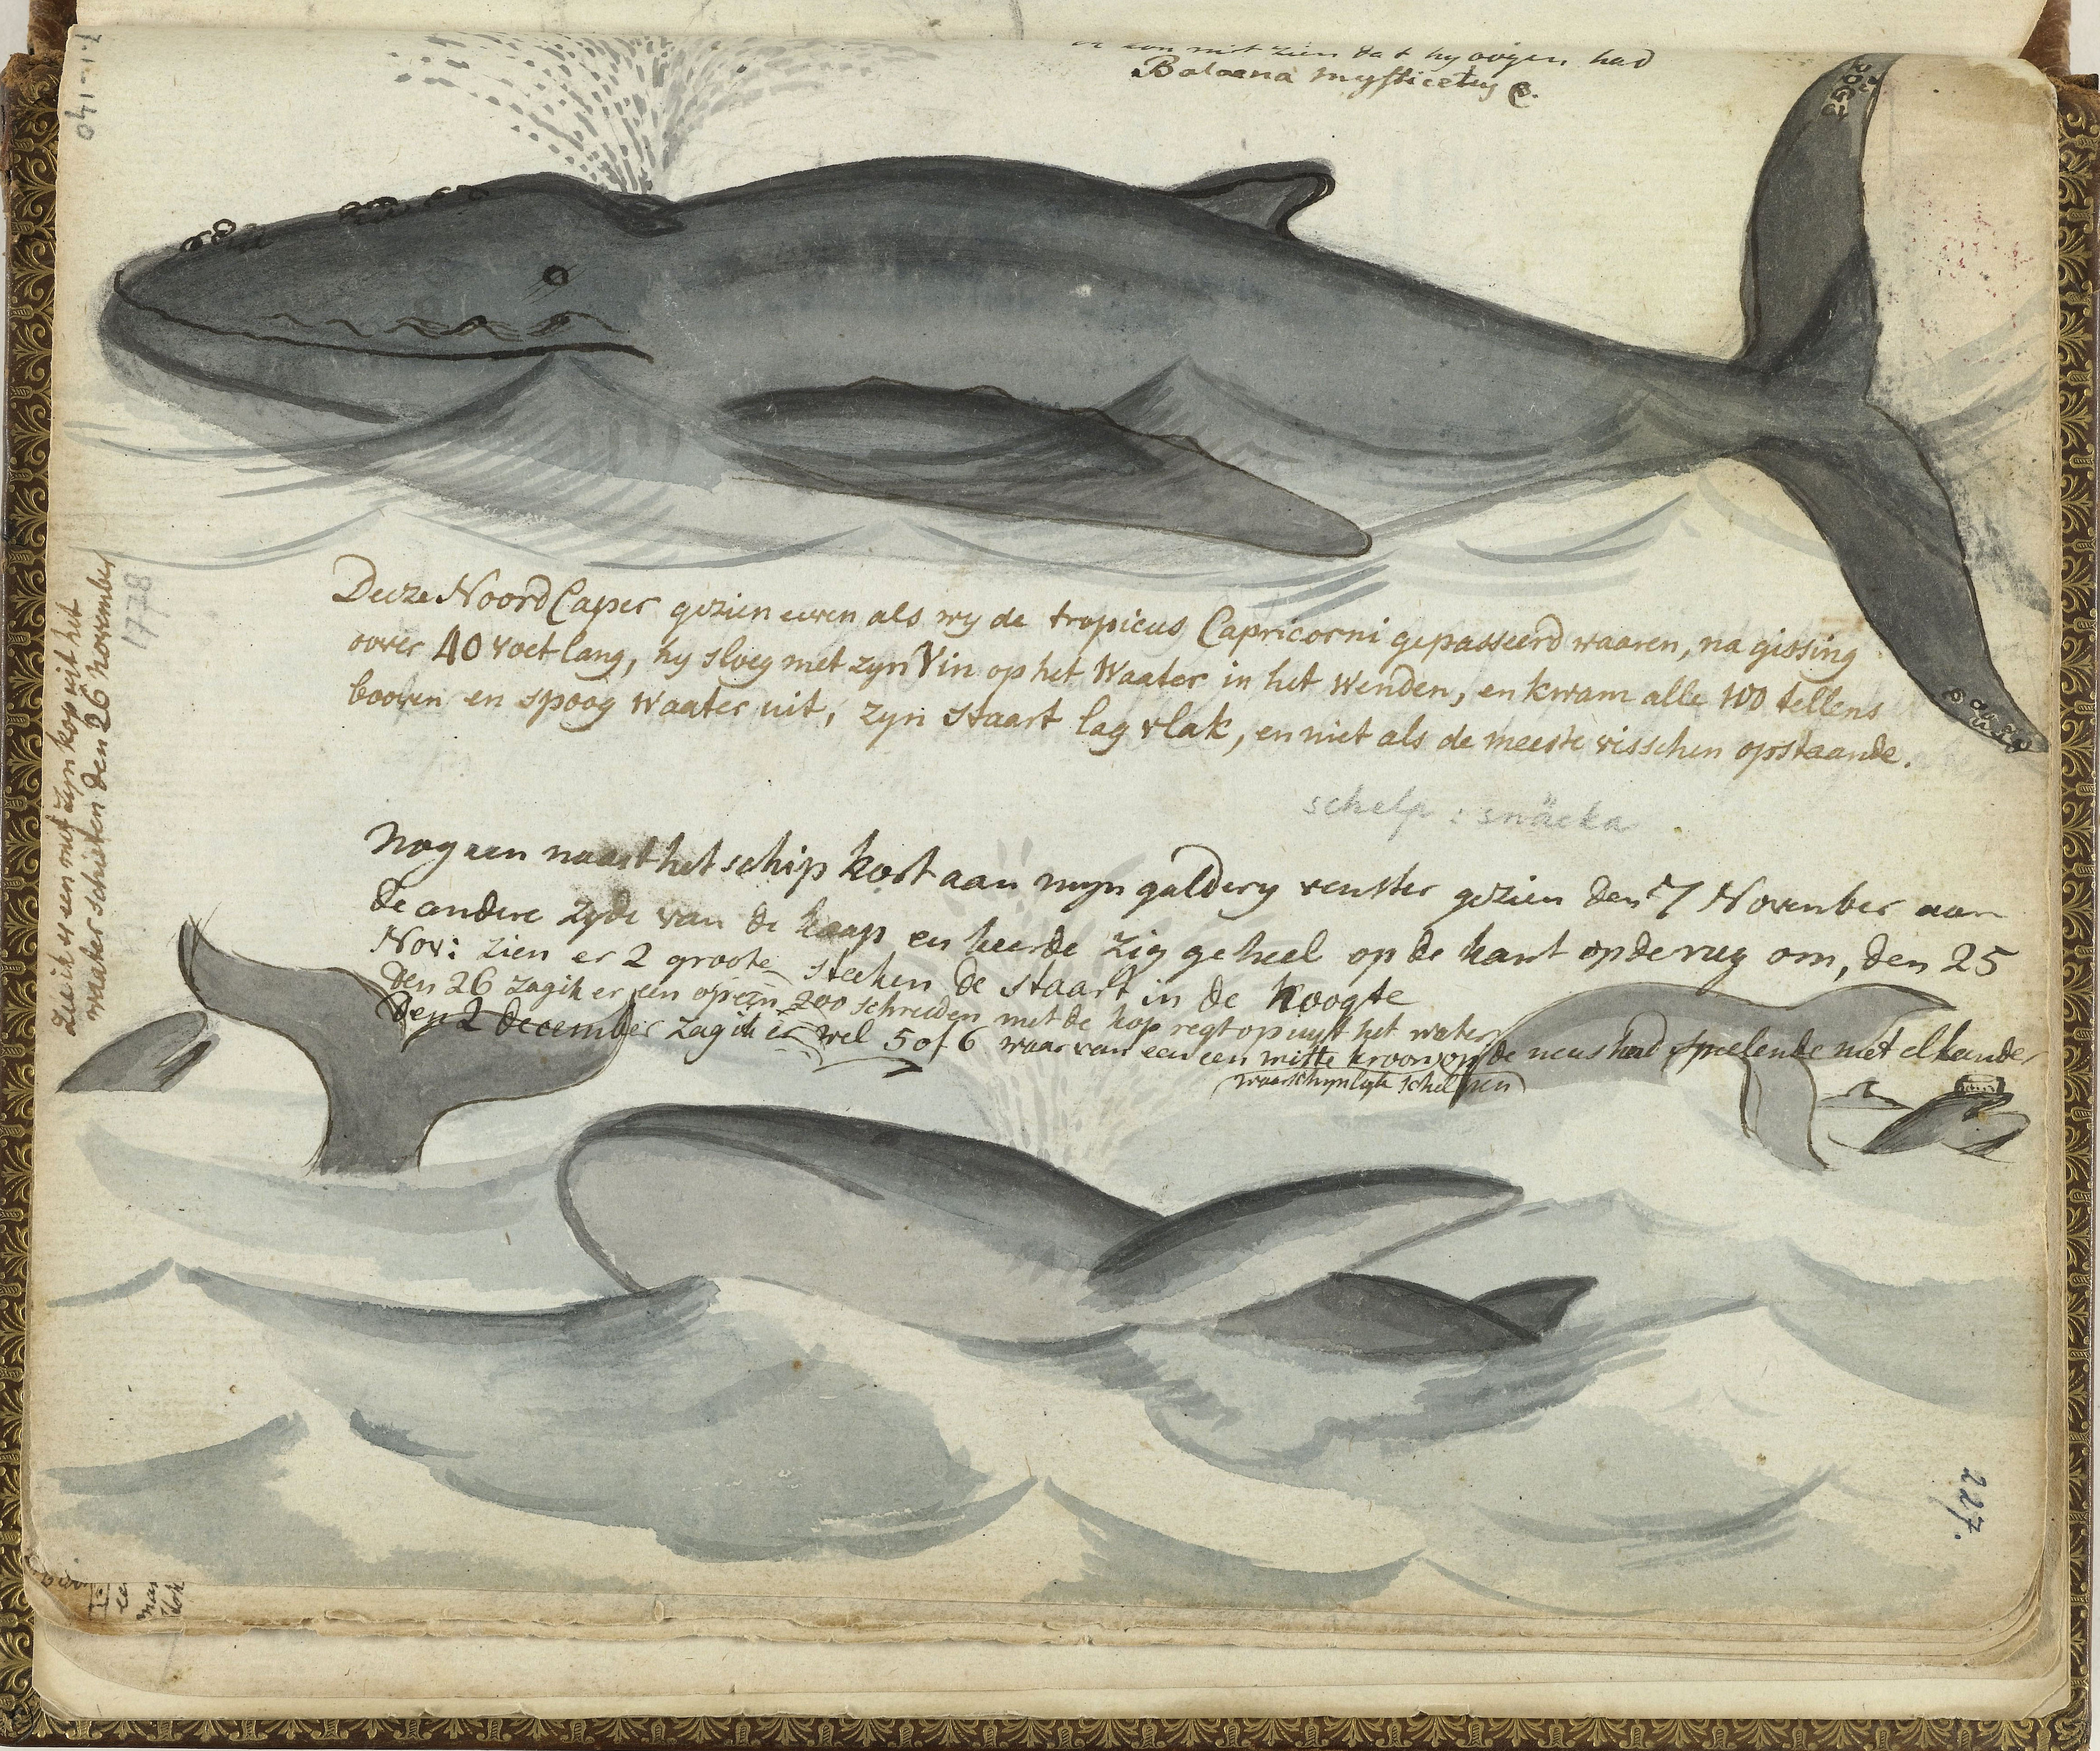 kon niet zien dat hy oogen had
Balaena mysticetus
Deeze Noord Caper gezien euven als wy de tropicus Capricorni gepasseerd waaren, na gissing
oover 40 voet lang, hy sloeg met zyn Vin op het Waater in het wenden, en kwam alle 100 tellens
booven en spoog Waater uit, zyn staart lag vlak, en niet als de meeste visschen opstaande.
schelp : snäcka
Nog een naast het schip kort aan myn galdery venster gezien den 7 November aan
de andere zyde van de kaap en keerde zig geheel op de kant op de rug om, den 25
Nov: zien er 2 groote steeken de staart in de hoogte
den 26 zag ik er een op een 200 schreeden met de kop regt op uyt het water
Den 2 december zag ik er wel 5 of 6 waar van een een witte kroon op de neus had speelende met elkander
waarschynlyk schelpen
zie ik er een met zyn kop uit het
waater schieten den 26 november
1778
1-1-140
227.